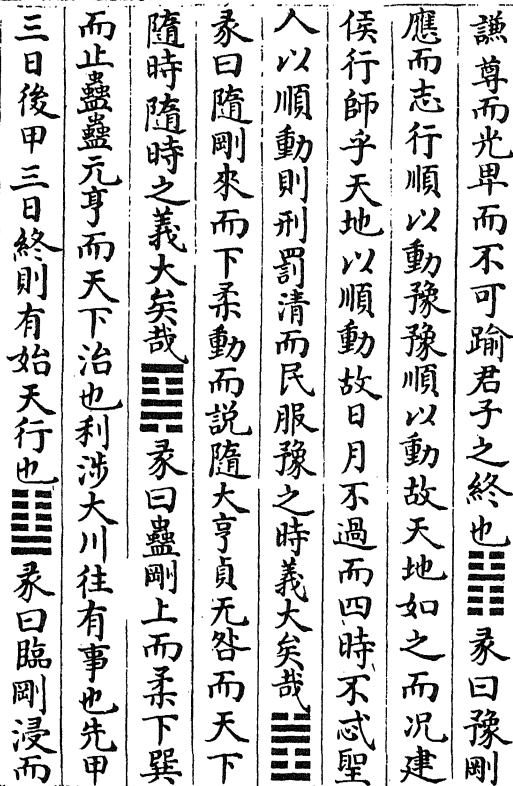 謙尊而光卑而不可踰君子之終也䷏彖曰豫剛
應而志行順以動豫豫順以動故天地如之而况建
侯行師乎天地以順動故日月不過而四時不忒聖
人以順動則刑罰清而民服豫之時義大矣哉䷐
彖曰隨剛來而下柔動而説隨大亨貞无咎而天下
隨時隨時之義大矣哉䷑彖曰蠱剛上而柔下巽
而止蠱蠱元亨而天下治也利涉大川往有事也先甲
三日後甲三日終則有始天行也䷒彖曰臨剛浸而